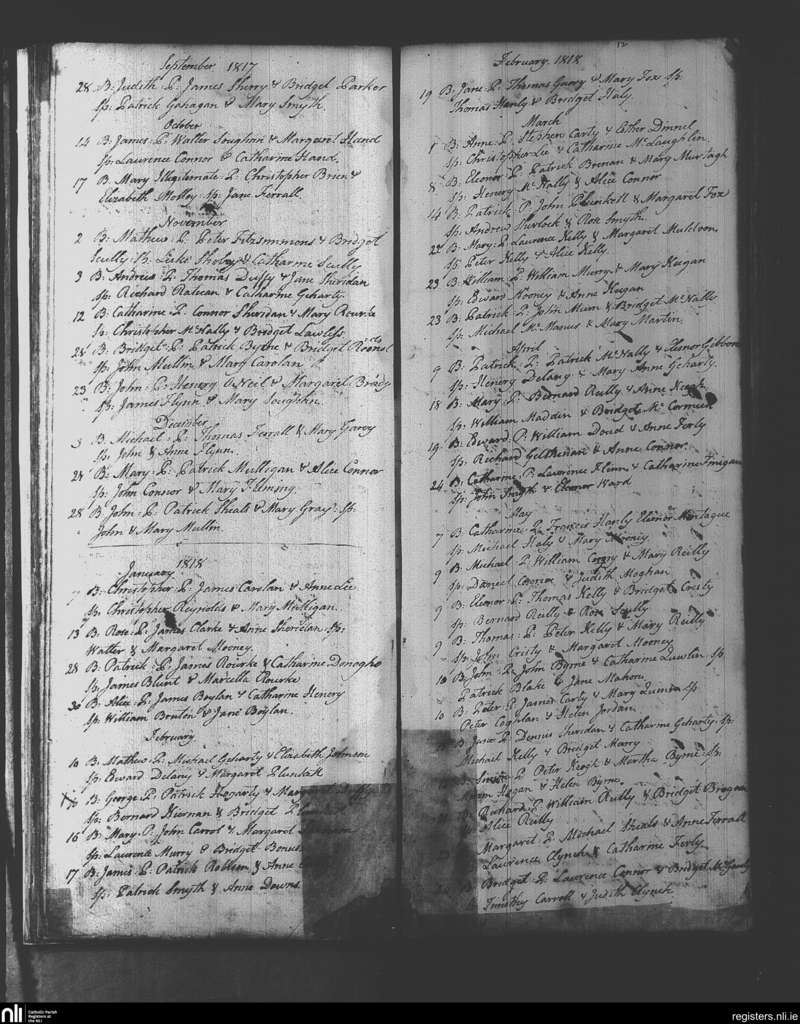 September 1817
28 B. Judith P. James Sherry & Bridget Parker
Sp. Patrick Gahagan & Mary Smyth.
October
14 B. James P. Walter Soughan & Margaret Hand
Sp. Laurence Connor & Catharine Hand.
17 B. Mary Illegitemate P. Christopher Brien &
Elizabeth Molloy Sp. Jane Ferrall.
November
2 B. Mathew P. Peter Fitzsimmons & Bridget
Scully Sp. Luke & Catharine Scully
3 B. Andrew P. Thomas Duffy & Jane Sheridan
Sp. Richard Ratican & Catharine Geharty.
12 B. Catharine P. Connor Sheridan & Mary Rourke
Sp. Christopher McNally & Bridget Lawless
B. Bridget P. Patrick Byrne & Bridget
Sp. John Mullin & Mary Carolan
23 B. John P. Henery O'Neil & Margaret Brady
Sp. James Flynn & Mary Soughlin
December
3 B. Michael P. Thomas Ferrall & Mary Garvy
Sp. John & Anne Flynn.
28 B. Mary P. Patrick Mullegan & Alice Connor
Sp. John Connor & Mary Fleming
28 B. John P. Patrick Sheals & Mary Gray Sp.
John & Mary Mullin
1818
January
7 B. Christopher P. James Carolan & Anne Lee
Sp. Christopher Reynolds & Mary Mulligan.
13 B. Rose P. James Clarke & Anne Sheridan Sp.
Walter & Margaret Mooney
28 B. Patrick P. James Rourke & Catharine Donagho
Sp. James Blunt & Marcella Rourke
30 B. Alice P. James Boylan & Catharine Henery
Sp. William Bruton & Jane Boylan.
February
10 B. Mathew P. Michael Geharty & Elizabeth Johnson
Sp. Eward Delany & Margaret Pluncket
B. George P. Patrick Hogarty &
Sp. Bernard Kiernan & Bridget
16 B. Mary P. John Carrol & Margaret
Sp. Laurence Murry & Bridget Bones
17 B. James P. Patrick & Anne
Sp. Patrick Smyth & Anne Downs
12
February 1818
19 B. Jane P. Thomas Garvy & Mary Fox Sp.
Thomas Hanly & Bridget Haly.
March
1 B. Anne P. Stephen Carty & Esther Dinnel
Sp. Christopher Lee & Catharine McLaughlin
8 B. Eleonor P. Patrick Brenan & Mary Murtagh
Sp. Henery McNally & Alice Connor
14 B. Patrick P. John Plunkell & Margaret Fox
Sp. Andrew Surlock & Rose Smyth.
22 B. Mary P. Laurence Kelly & Margaret Muldoon
Sp. Peter Kelly & Alice Kelly.
23 B. William P. William Murry & Mary Keegan
Sp. Eward Rooney & Anne Keegan
23 B. Patrick P. John & Bridget McNally
Sp. Michael McManus & Mary Martin.
April
9 B. Patrick P. Patrick McNally & Elonor Gibbons
Sp. Henery Delany & Mary Anne Geharty.
18 B. Mary P. Bernard Reilly & Anne Keogh
Sp. William Madden & Bridget McCormick
19 B. Eward P. William Doud & Anne Forly
Sp. Richard & Anne Connor.
24 B. Catharine P. Laurence Flinn & Catharine Finigan
Sp. John & Elonor Ward
May
7 B. Catharine P. Francis Hanly Elonor Montague
Sp. Michael Haly & Mary
9 B. Michael P. William & Mary Reilly
Sp. Daniel Connor & Judith Meghan
9 B. Elonor P. Thomas Kelly & Bridget Cristy
Sp. Bernard Reilly & Rose Scully
9 B. Thomas P. Peter Kelly & Mary Reilly
Sp. John Cristy & Margaret Mooney
10 B. John P. John Byrne & Catharine Lawlin Sp.
Patrick Blake & Jane Mahon.
10 B. Peter P. James Carty & Mary Sp.
Peter Coghlan & Helen Jordan.
B. Jane P. Dennis Sheridan & Catharine Geharty Sp.
Michael Kelly & Bridget Marry
P. Peter Keogh & Martha Byrne Sp.
Hogan & Helen Byrne.
Richard P. William Reilly & Bridget Brogan
Alice Reilly
Margaret P. Michael & Anne Ferrall
Laurence Clynch & Catharine Forly
Bridget P. Laurence Connor & Bridget
Timothy Carroll & Judith Clynch
nli Catholic Parish
Registers at
the NLI
registers.nli.ie